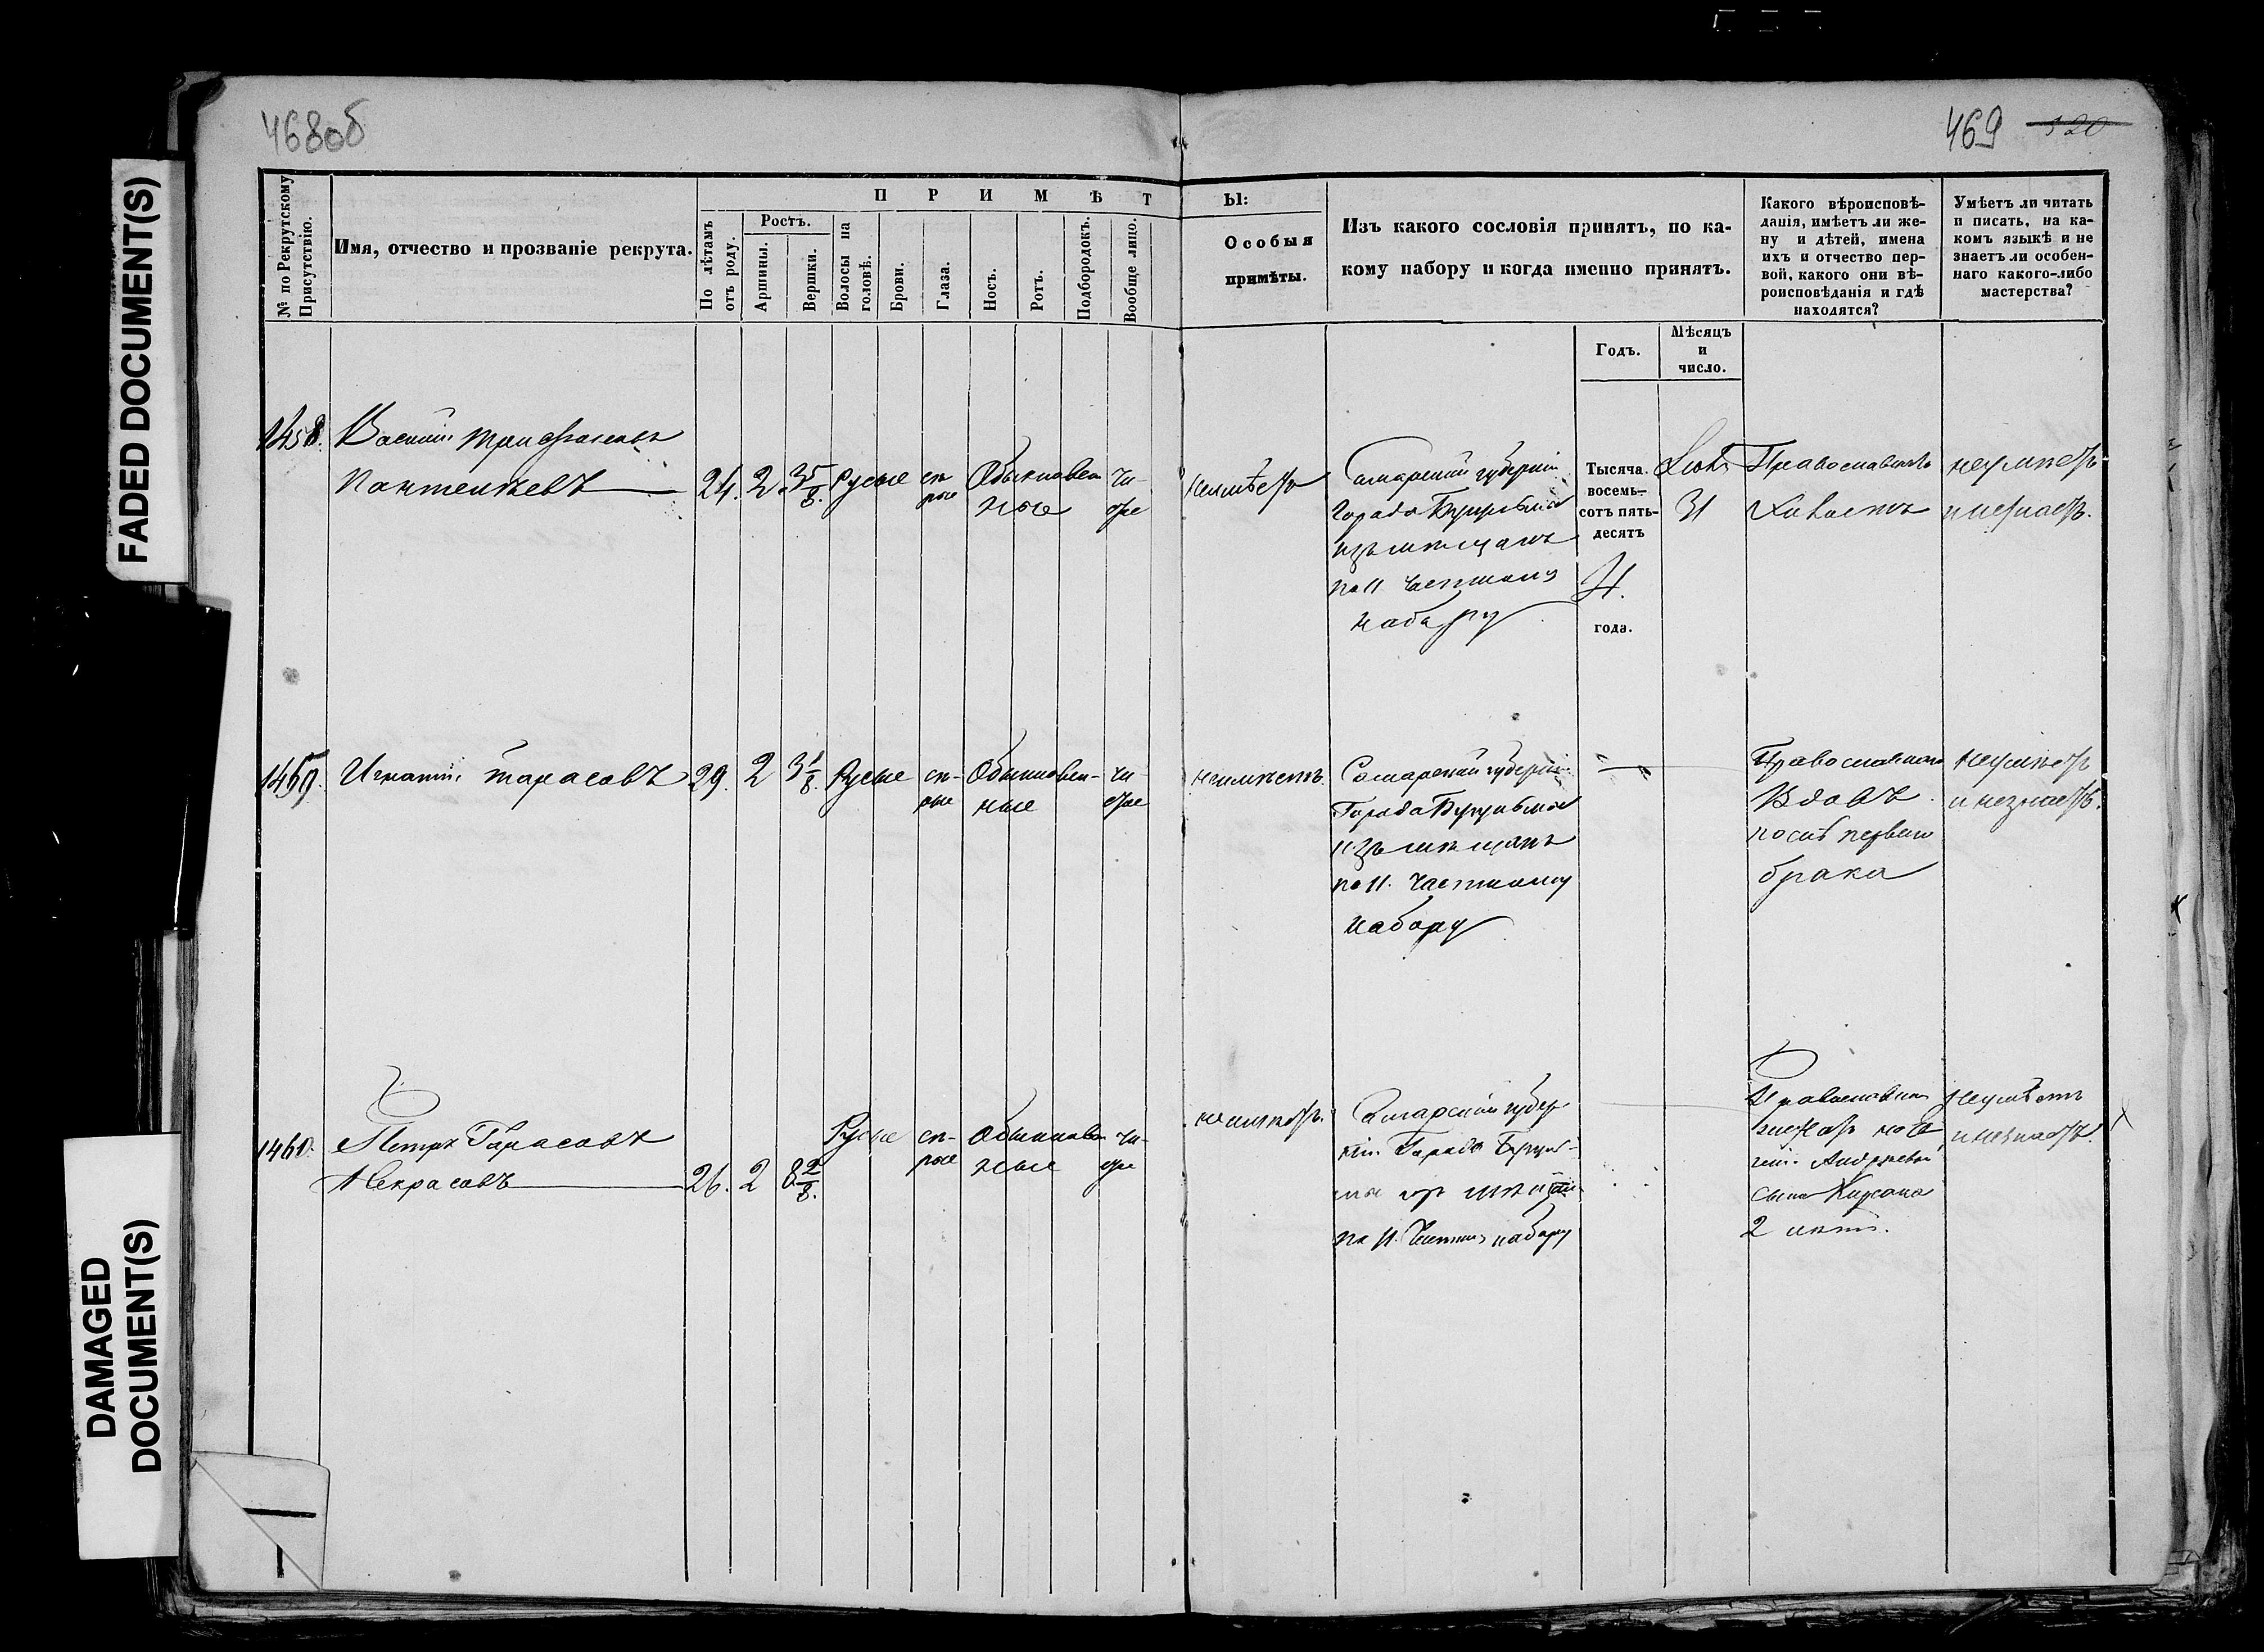 FADED DOCUMENT(S)
DAMAGED
DOCUMENT(S)
468об
469 320
№ по Рекрутскому
Присутствію.
Имя, отчество и прозваніе рекрута.
П Р И М Ѣ Т
Ы:
По лѣтамъ
отъ роду.
Ростъ.
Аршины.
Вершки.
Волосы на
головѣ.
Брови.
Глаза.
Носъ.
Ротъ.
Подбородокъ.
Вообще лицо.
Особыя
примѣты.
Изъ какого сословія принятъ, по ка-
кому набору и когда именно принятъ.
Годъ.
Мѣсяцъ
и
число.
Какого вѣроисповѣ-
данія, имѣетъ ли же-
ну и дѣтей, имена
ихъ и отчество пер-
вой, какого они вѣ-
роисповѣданія и гдѣ
находятся?
Умѣетъ ли читать
и писать, на ка-
комъ языкѣ и не
знаетъ ли особен-
наго какого-либо
мастерства?
1458.
Пантелѣевъ
24. 2. 3 5/8. Русые сѣ-
рые
Обыкновен
ные
чи-
стое
неимѣетъ
Самарской губерніи
Города Бугульмы
изъ мѣщанъ
по 11 частному
набору
Тысяча
восемь-
сотъ пять-
десятъ
4.
года.
31
Православнаго
Холостъ
неумѣетъ
и незнаетъ.
1459. Игнатій Тарасовъ 29. 2 3 1/8. Русые сѣ-
рые
Обыкновен-
ные
чи-
стое
неимѣетъ.
Самарской губерніи
Города Бугульмы
изъ мѣщанъ
по 11. частному
набору
Православнаго
Вдовъ
послѣ перваго
брака
неумѣетъ
и незнаетъ.
1460.
Петръ Тарасовъ
Некрасовъ 26. 2 8 2/8.
Русые сѣ-
рые
Обыкновен
ные
чи-
стое
неимѣетъ.
Самарской губер-
ніи Города Бугуль-
мы изъ мѣщанъ
по 11. частному набору
Андреевой
сына
2 лѣтъ.
неумѣетъ
и незнаетъ.